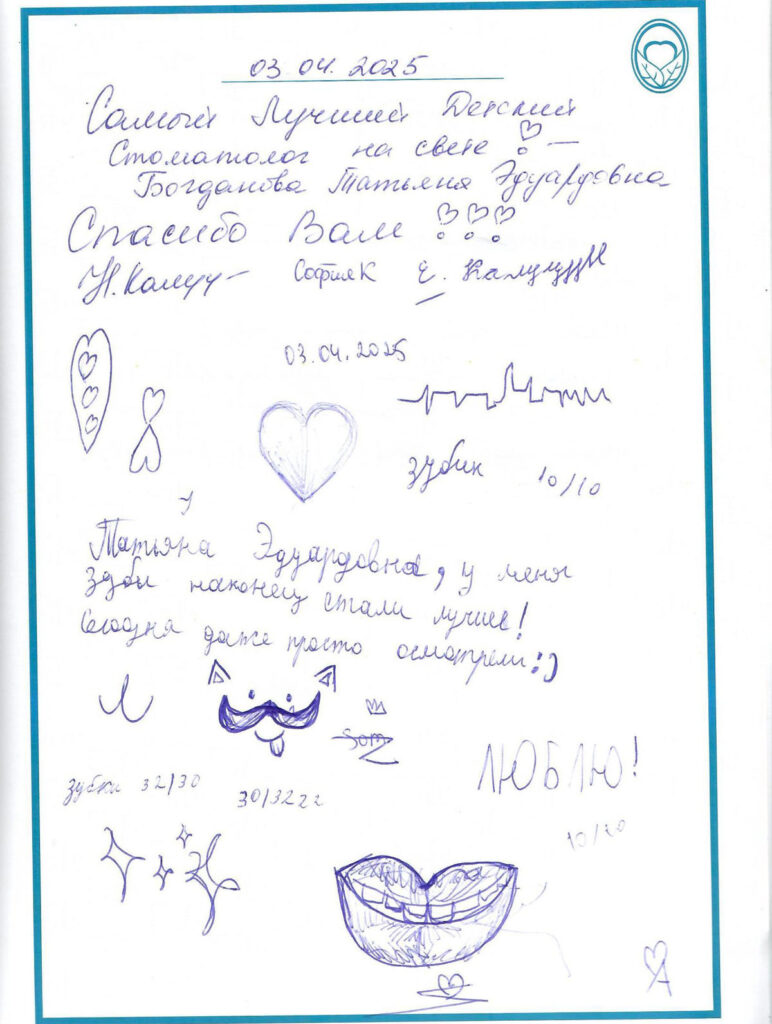 03.04.2025
Самый Лучший Детский
Стоматолог на свете! —
Богданова Татьяна Эдуардовна
Спасибо Вам!!!
София К Е.
03.04.2025
зубик 10/10
Татьяна Эдуардовна, у меня
зубы наконец стали лучше!
Сегодня даже просто осмотрели :)
зубки 32/30
30/3222
ЛЮБЛЮ!
10/10